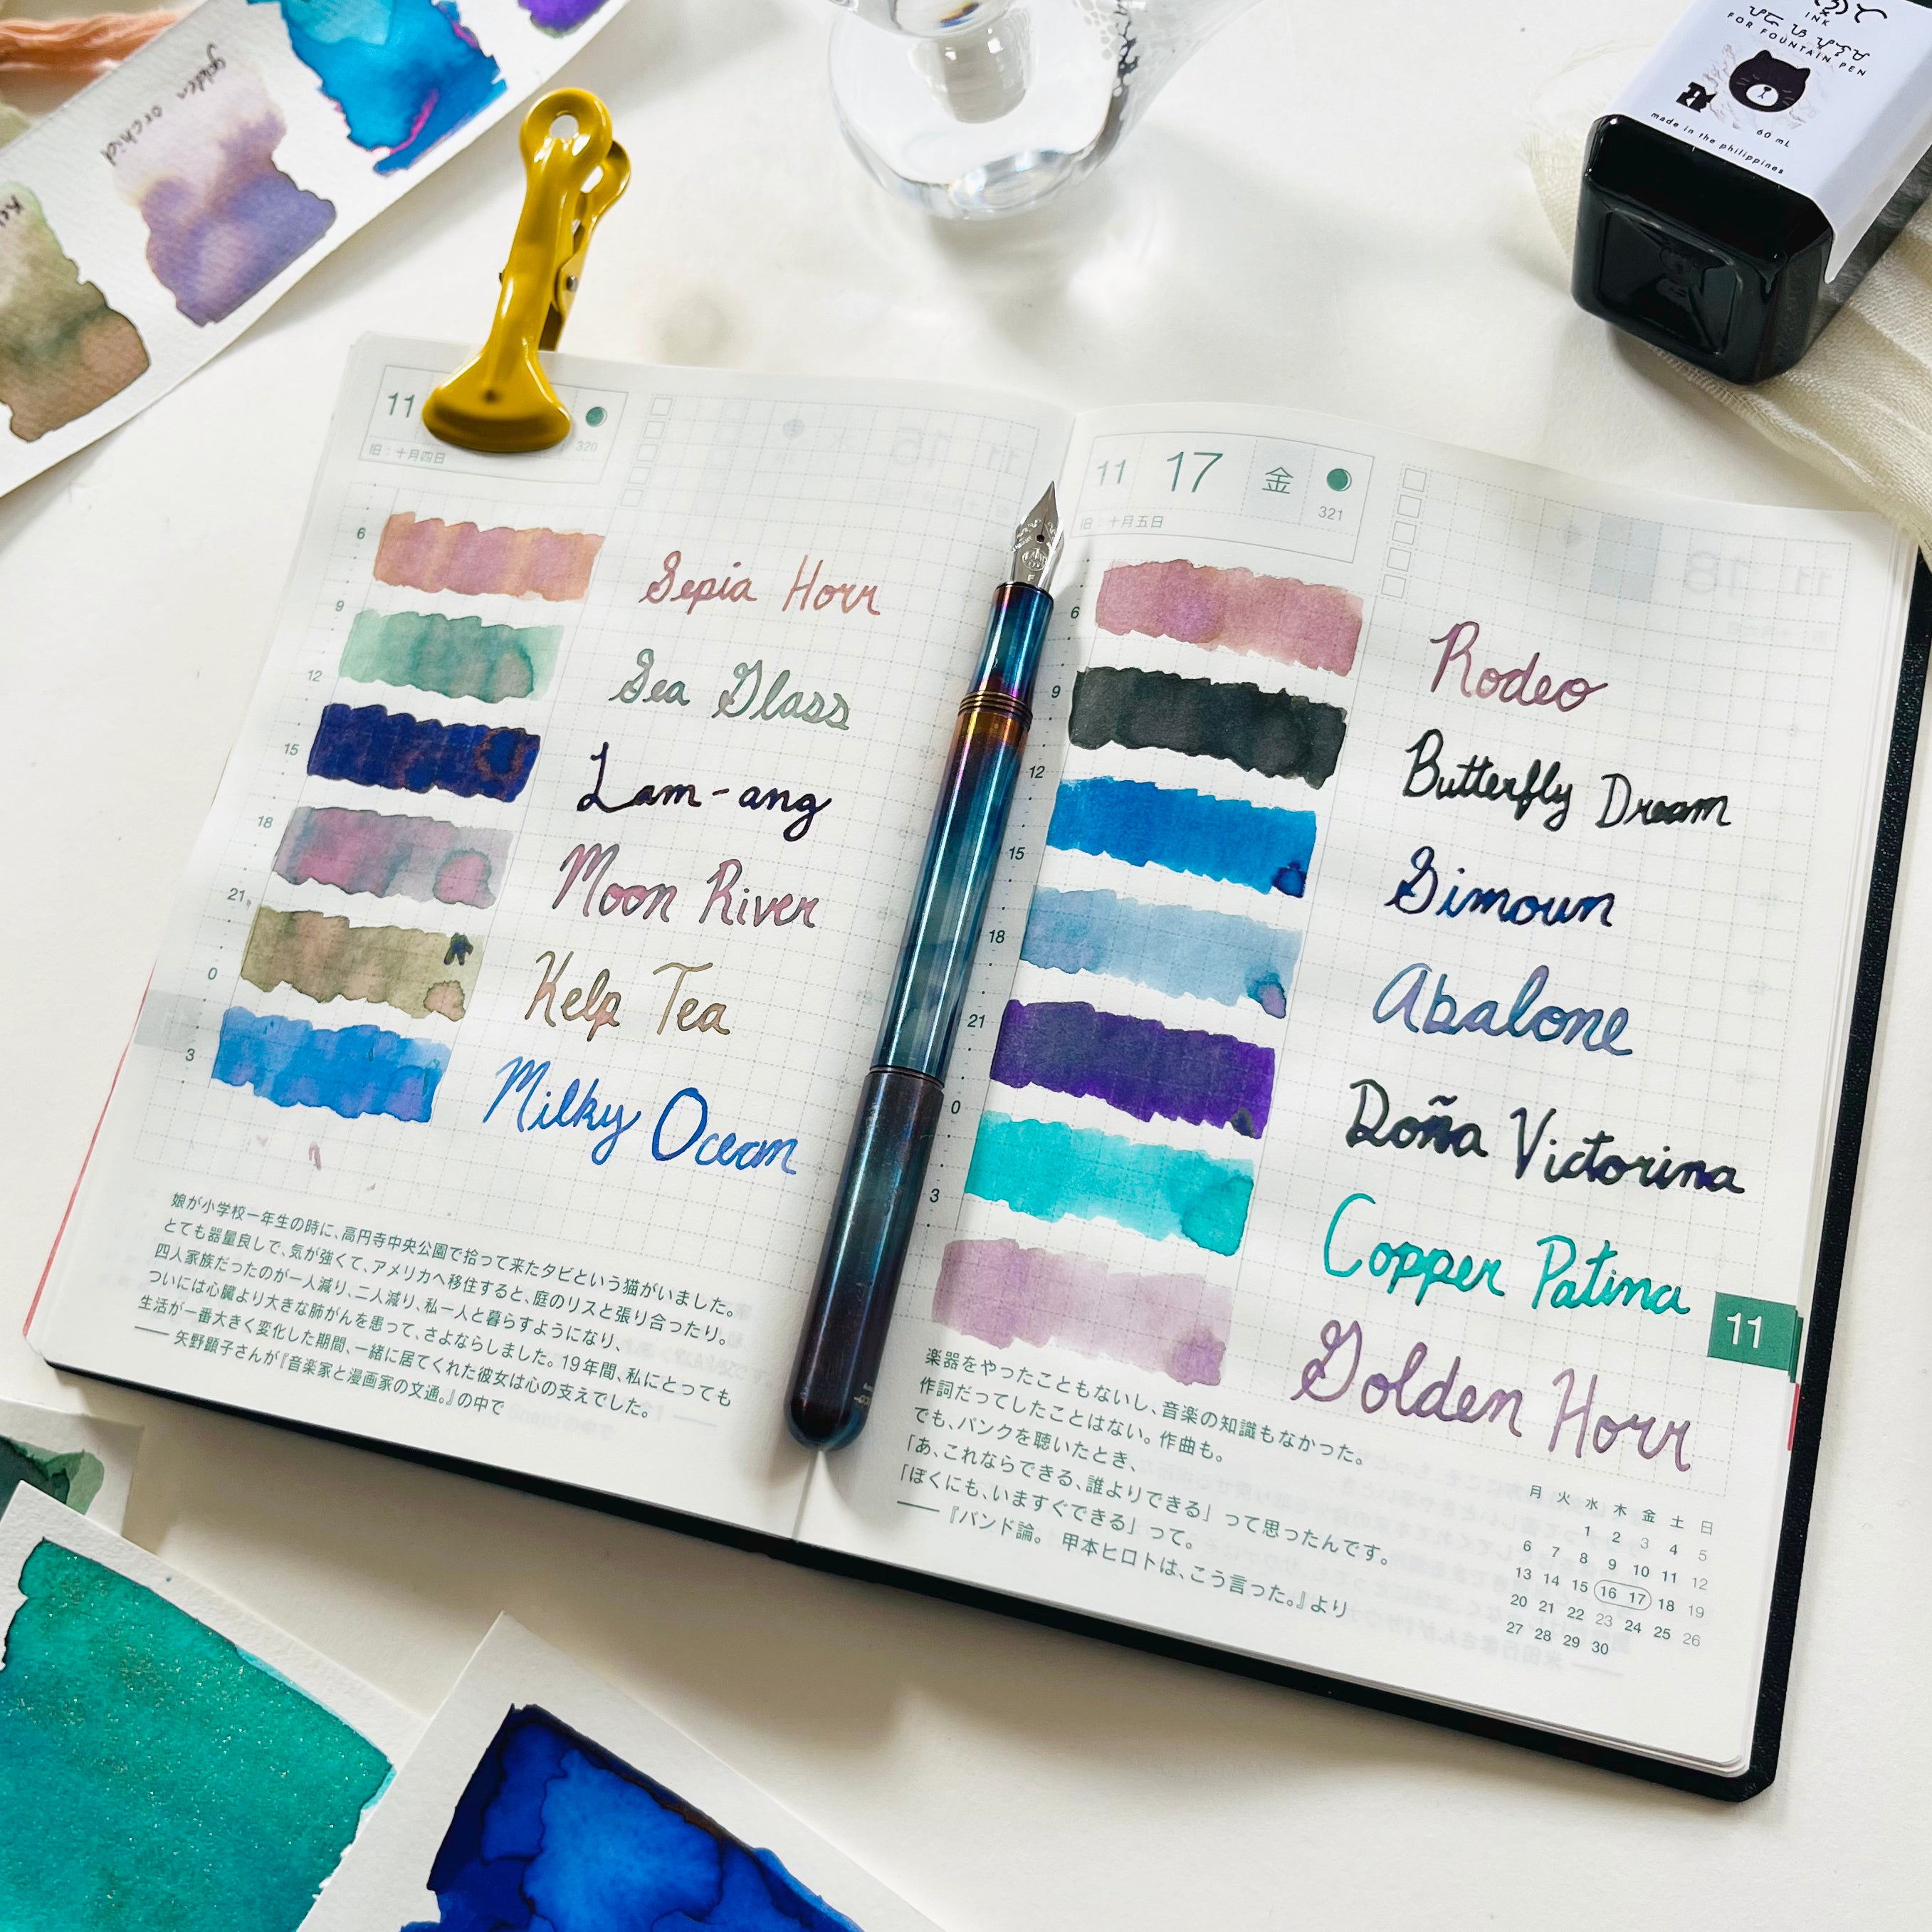 golden orchid
INK
FOR FOUNTAIN PEN
60 mL
made in the philippines
11
320
旧:十月四日
6
Sepia Horr
9
Sea Glass
12
Lam-ang
15
Moon River
18
Kelp Tea
21
Milky Ocean
0
3
娘が小学校一年生の時に、高円寺中央公園で拾って来たタビという猫がいました。
とても器量良しで、気が強くて、アメリカへ移住すると、庭のリスと張り合ったり。
四人家族だったのが一人減り、二人減り、私一人と暮らすようになり、
ついには心臓より大きな肺がんを患って、さよならしました。19年間、私にとっても
生活が一番大きく変化した期間、一緒に居てくれた彼女は心の支えでした。
── 矢野顕子さんが『音楽家と漫画家の文通。』の中で
11 17 金
321
旧:十月五日
6
Rodeo
9
Butterfly Dream
12
Simoun
15
Abalone
18
Doña Victorina
21
Copper Patina
0
Golden Horr
3
11
楽器をやったこともないし、音楽の知識もなかった。
作詞だってしたことはない。作曲も。
でも、パンクを聴いたとき、
「あ、これならできる、誰よりできる」って思ったんです。
「ぼくにも、いますぐできる」って。
──『バンド論。 甲本ヒロトは、こう言った。』より
月 火 水 木 金 土 日
1 2 3 4 5
6 7 8 9 10 11 12
13 14 15 16 17 18 19
20 21 22 23 24 25 26
27 28 29 30